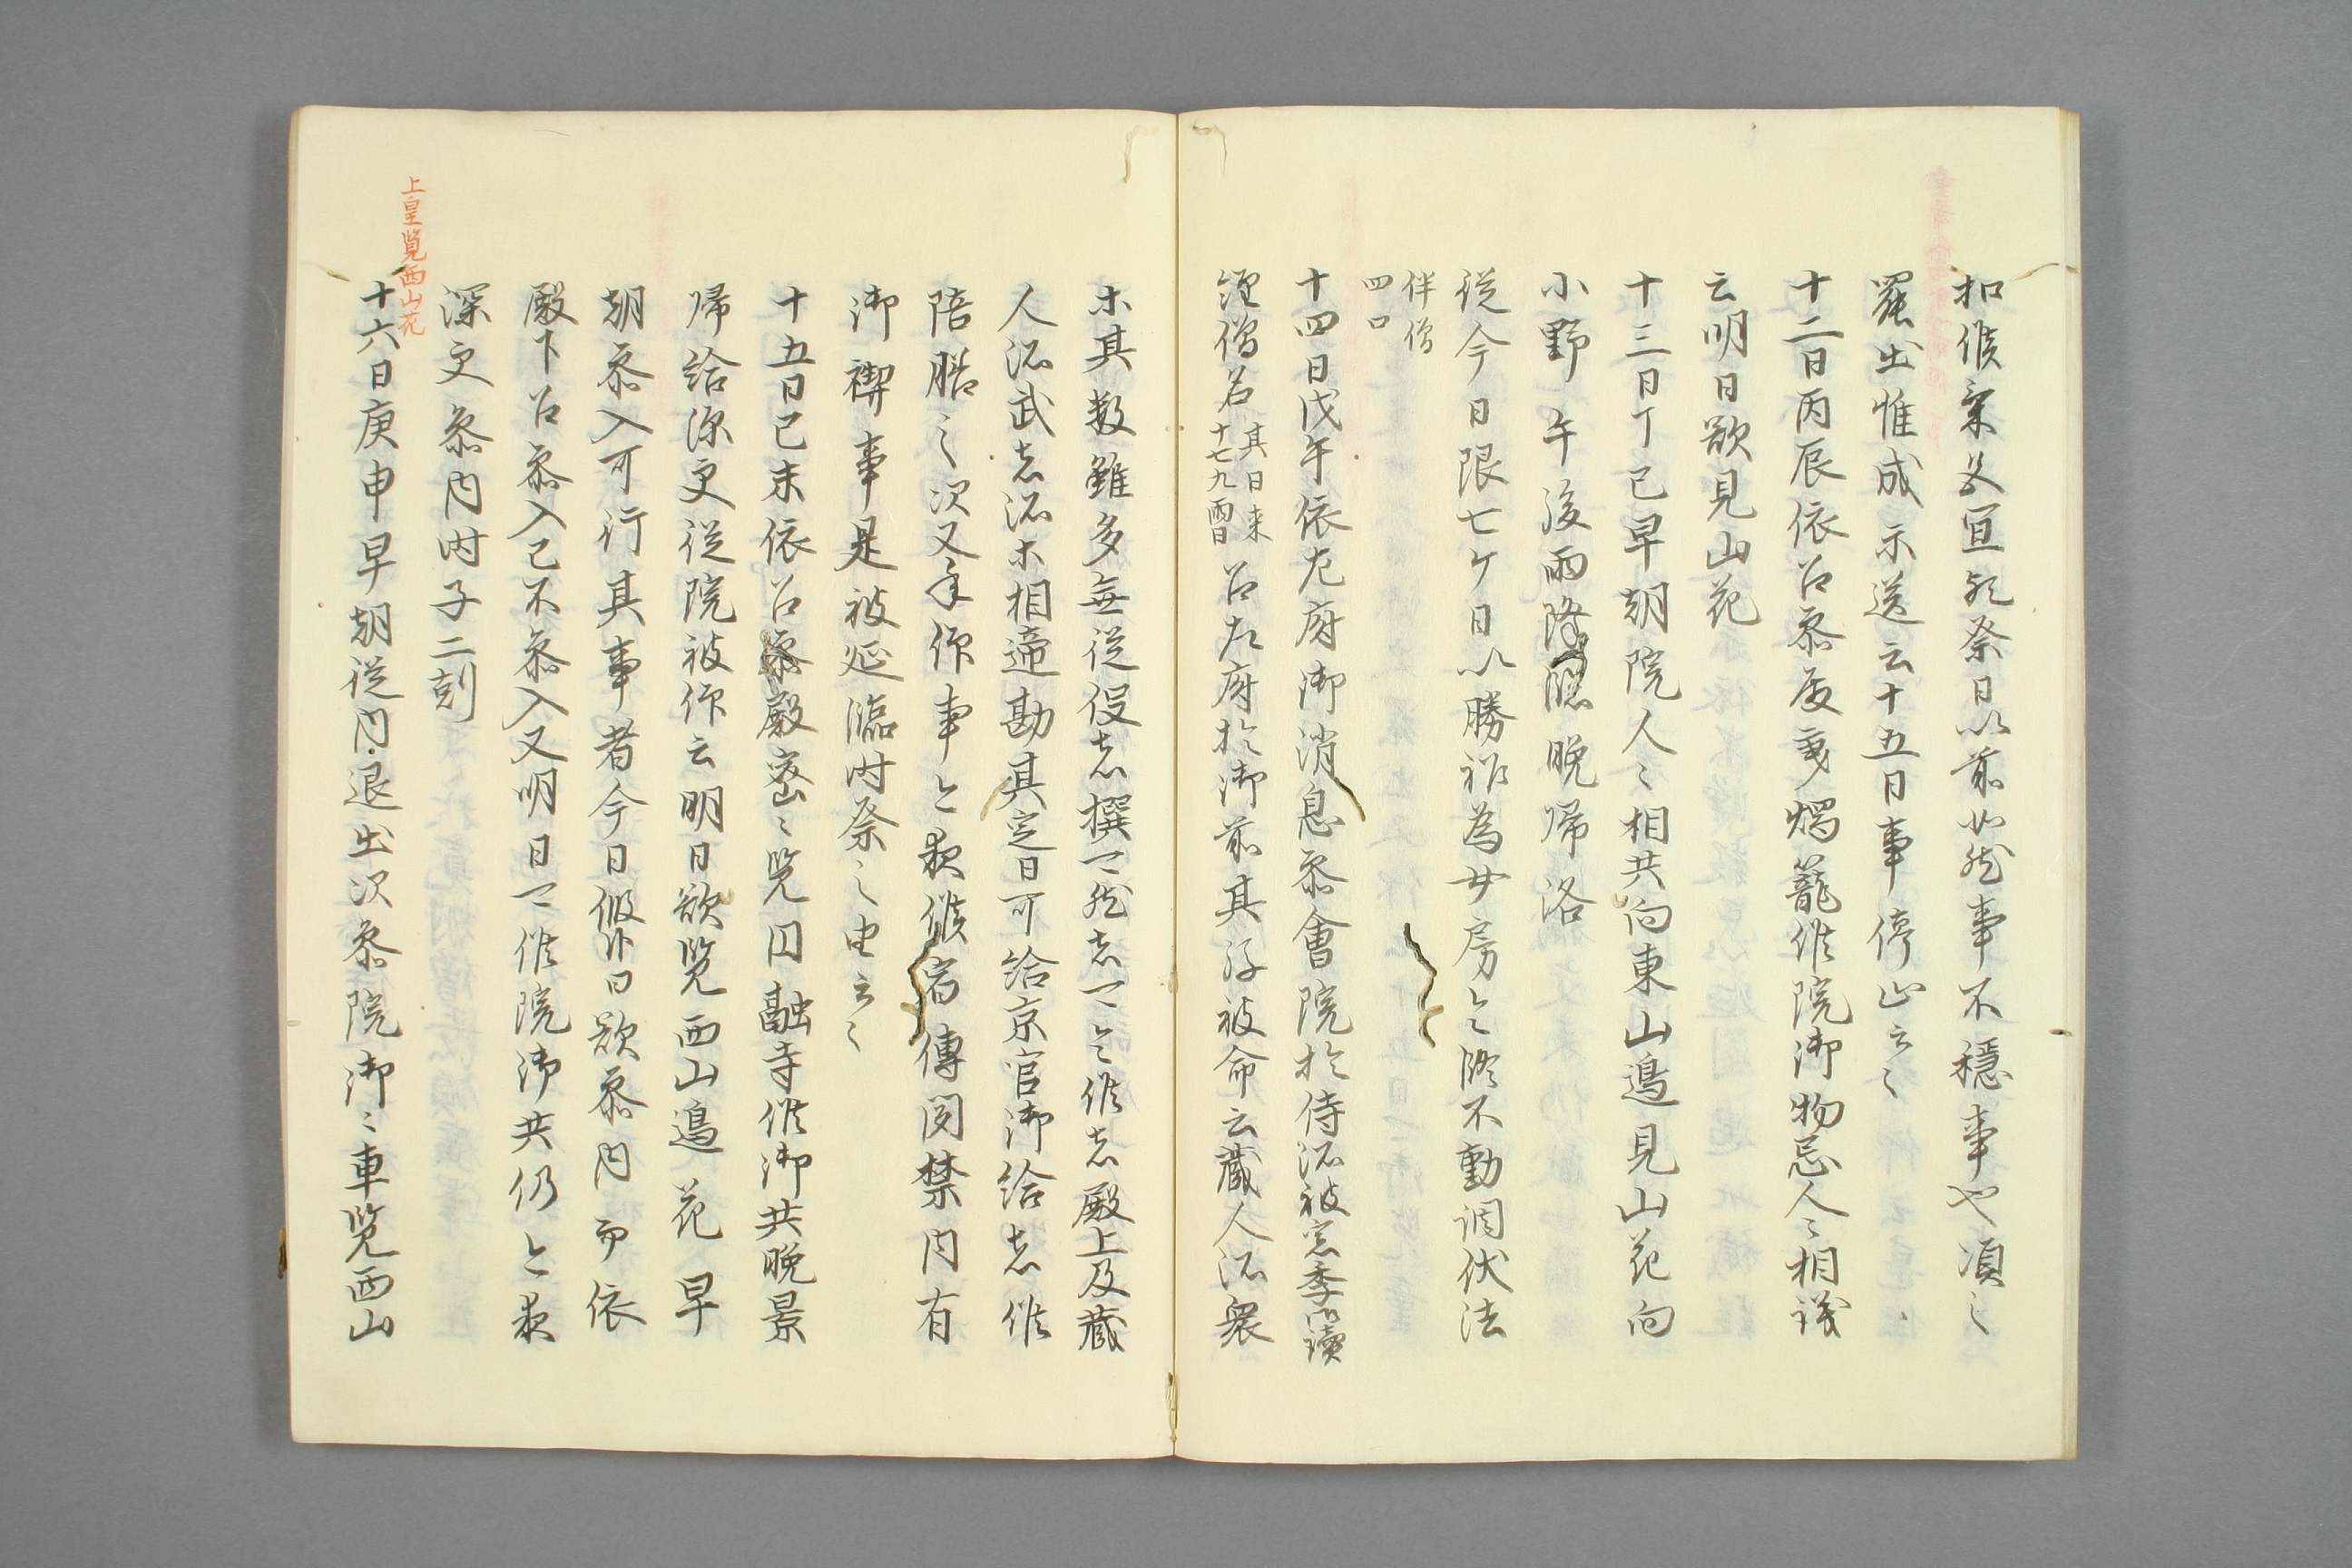 扣候案又宜歟祭日以前如然事不穏事也頃之
罷出惟成示送云十五日事停止云々
十二日丙辰依召参殿乗燭籠候院御物忌人々相議
云明日欲見山花
十三日丁巳早朝院人々相共向東山邊見山花向
小野午後雨降臨晩帰洛
従今日限七ケ日以勝祚為女房令修不動調伏法
伴僧
四口
十四日戊午依左府御消息参會院於侍所被定季御讀
經僧名 其日来
十七九両日 召左府於御前其次被命云蔵人所衆
等其数雖多無従役者撰可然者可令候者殿上及蔵
人所武者所等相逓勘其定日可給京官御給者候
陪膳之次又奉仰事今夜候宿傳聞禁内有
御禊事是被延臨時祭之由云々
十五日己未依召参殿密々覧円融寺候御共晩景
帰給深更従院被仰云明日欲覧西山邊花早
朝参入可行其事者今日假今日欲参内而依
殿下召参入已不参入又明日可候院御共仍今夜
深更参内时子二刻
上皇覧西山花
十六日庚申早朝従内退出次参院御々車覧西山